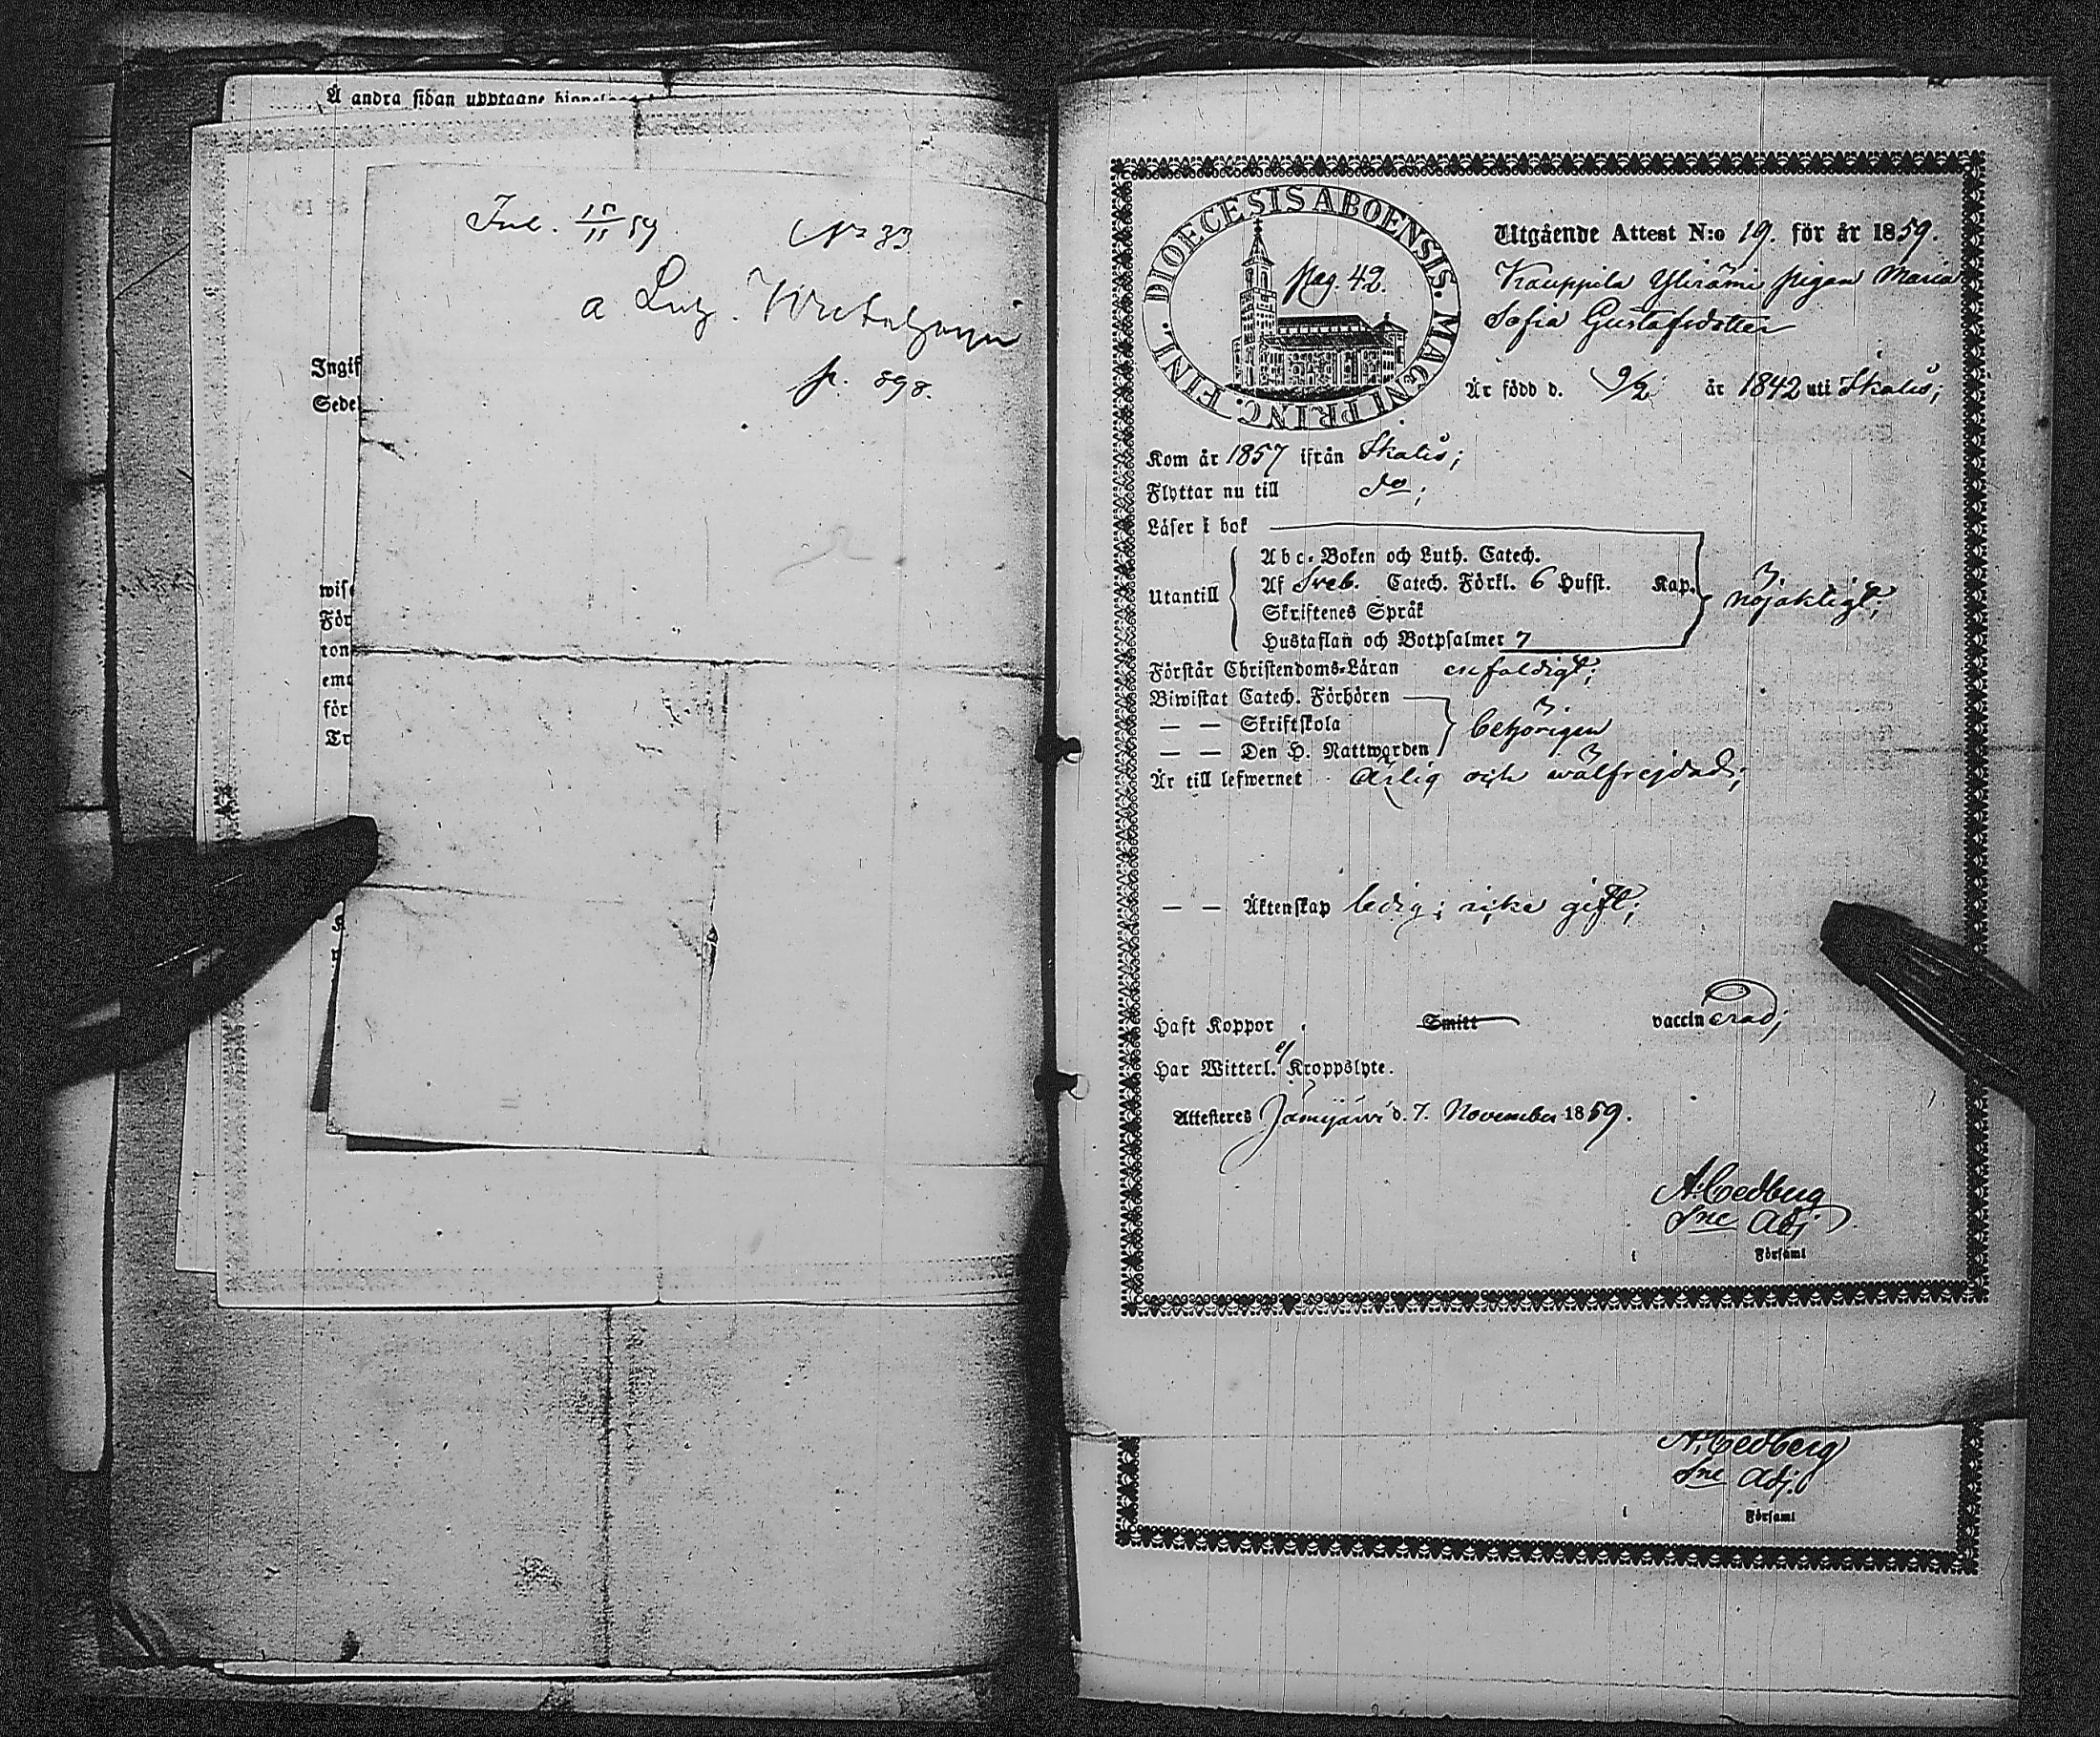 Å andra sidan upptagne
Inl. 15/11 59 No 33
a
p. 898.
Ingif
Sedel
wis
För
ton
emo
för
Tr
DIOECESIS ABOENSIS. MAGNI PRINC. FINL.
pag. 42.
Utgående Attest N:o 19. för år 1859.
Kauppila Ylirämi pigan Maria
Sofia Gustafsdotter
Är född d. 9/2 år 1842 uti Ikalis;
Kom år 1857 ifrån Ikalis;
Flyttar nu till do;
Läser i bok
Utantill
Abc-Boken och Luth. Catech.
Af Sveb. Catech. Förkl. 6 Hufst. Kap.
nöjaktigt;
Skriftenes Språk
Hustaflan och Botpsalmer 7
Förstår Christendoms-Läran enfaldigt;
Biwistat Catech. Förhören
— — Skriftskola behörigen
— — Den H. Nattwarden
Är till lefwernet ärlig och wälfrejdad;
— — Äktenskap ledig; icke gift;
Haft Koppor Smitt vaccinerad;
Har Witterl. ej Kroppslyte.
Attesteras Jämijärvi d. 7. November 1859.
A. Cedberg
Sne Adj
i Församl
A. Cedberg
Sne Adj.
i Församl